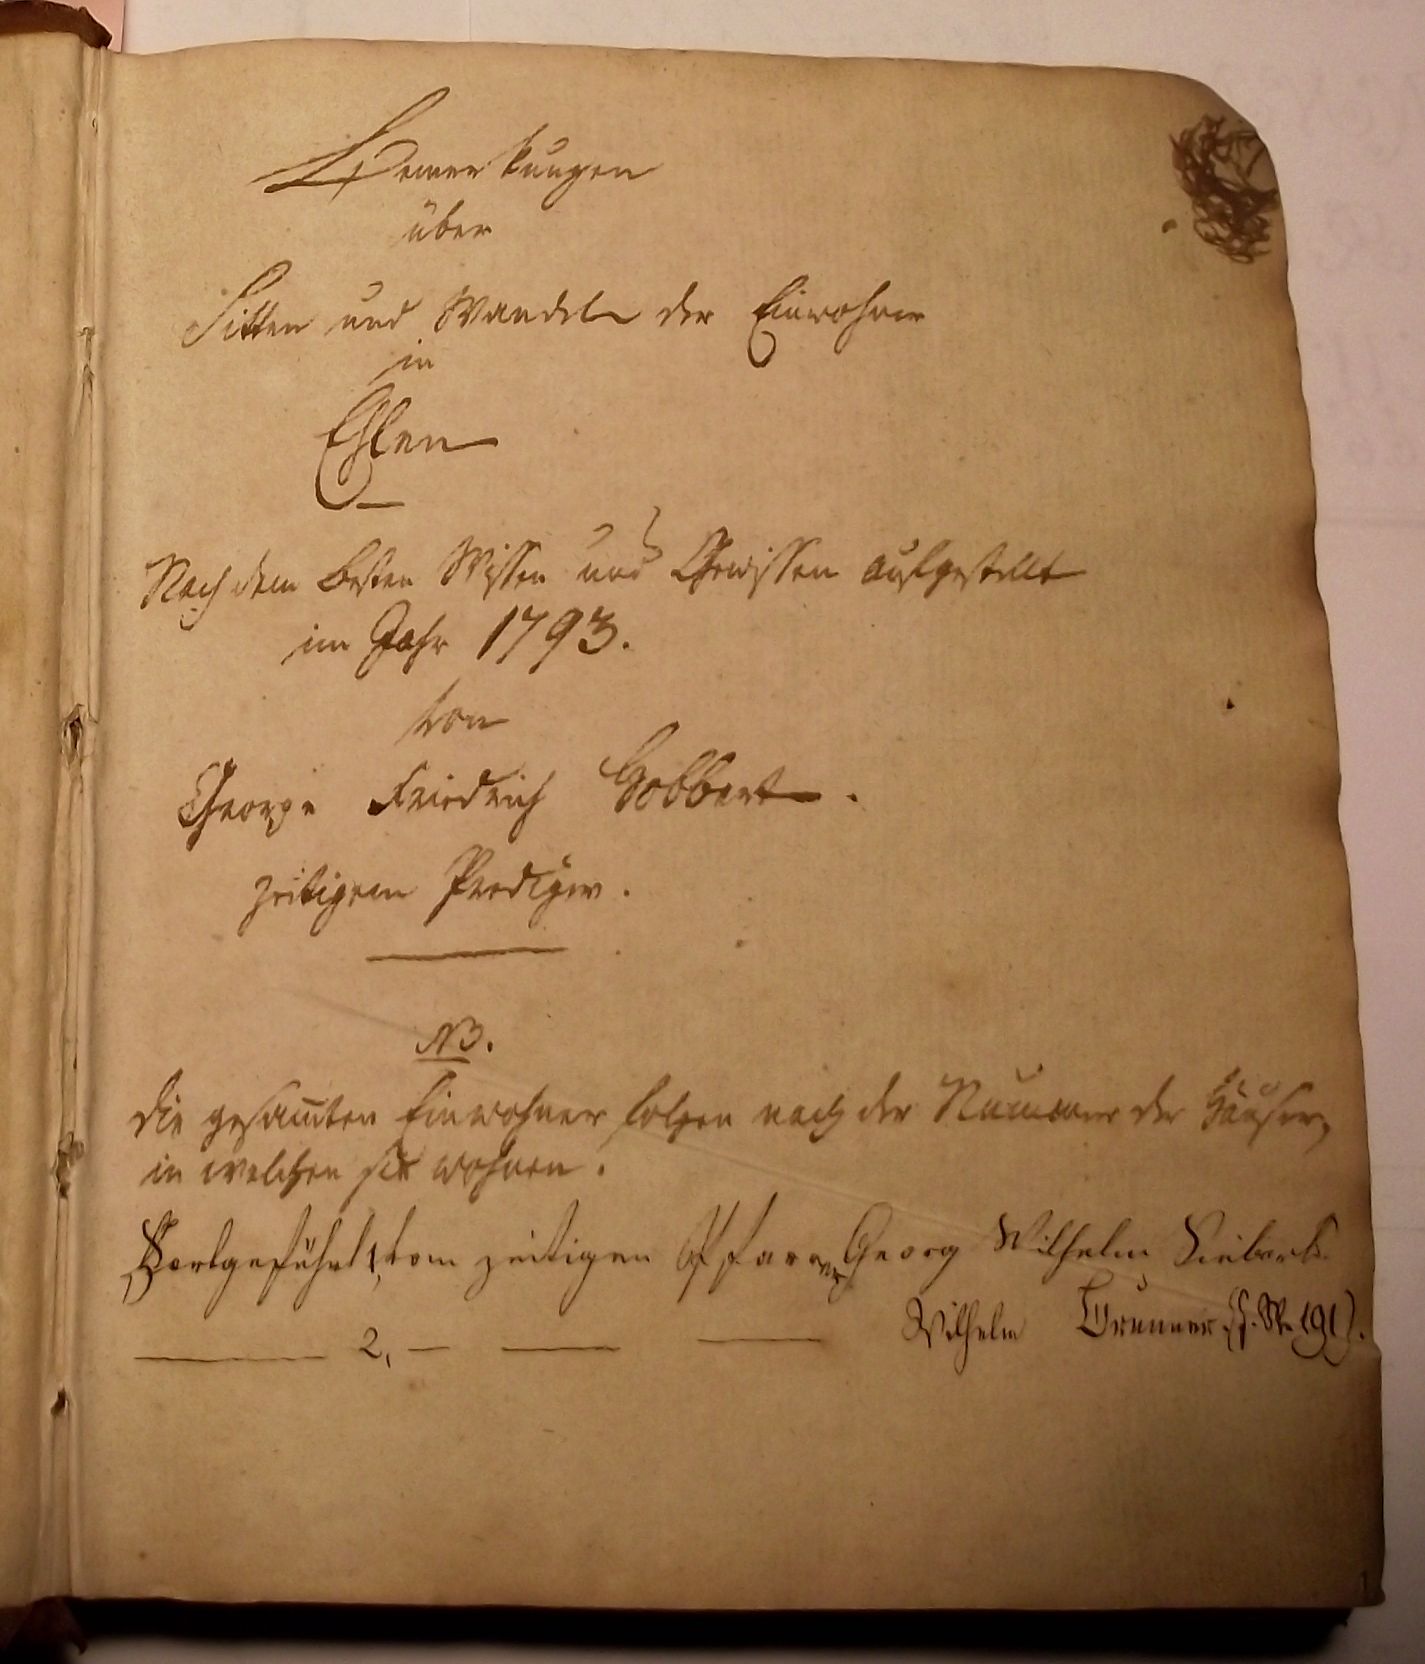 Bemerkungen
über
Sitten und Wandel der Einwohner
in
Ehlen
Nach dem besten Wissen und Gewissen aufgestellt
im Jahr 1793.
von
George Friedrich Gobbert.
zeitigem Prediger.
NB.
die gesam̄ten Einwohner folgen nach der Nummer der Häuser,
in welchen sie wohnen.
Fortgeführt 1, vom zeitigen Pfarrer Georg Wilhelm Siebert.
2, Wilhelm Brunner (f. 191).
1